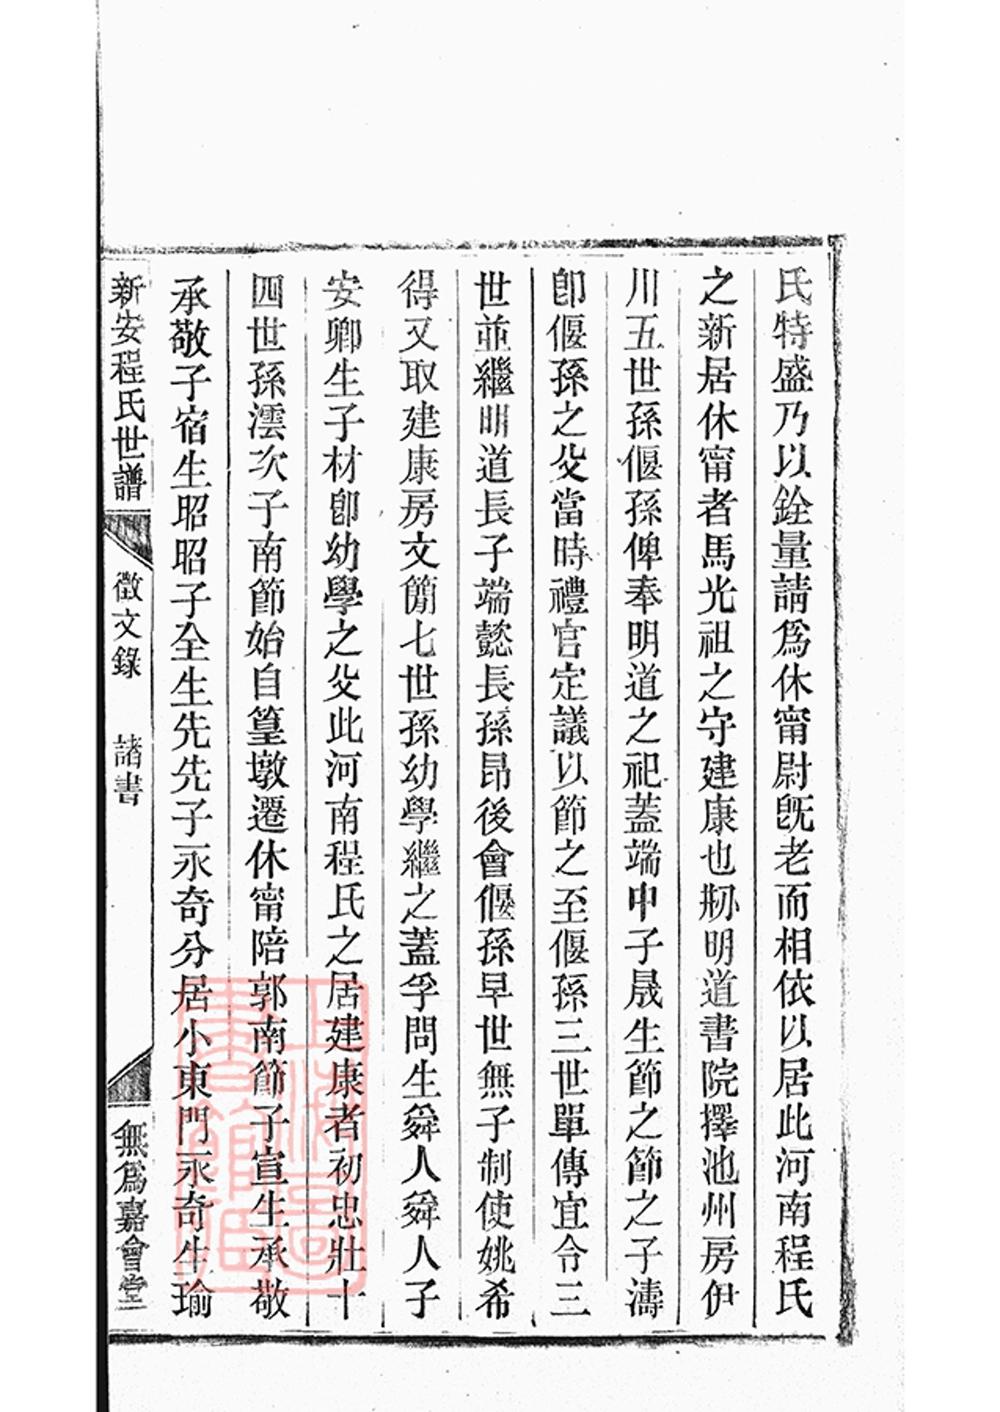 氏特盛乃以銓量請爲休甯尉旣老而相依以居此河南程氏
之新居休甯者馬光祖之守建康也剏明道書院擇池州房伊
川五世孫偃孫俾奉明道之祀蓋端中子晟生節之節之子濤
卽偃孫之父當時禮官定議以節之至偃孫三世單傳宜令三
世並繼明道長子端懿長孫昂後會偃孫早世無子制使姚希
得又取建康房文簡七世孫幼學繼之蓋孚問生舜人舜人子
安卿生子材卽幼學之父此河南程氏之居建康者初忠壯十
四世孫澐次子南節始自篁墩遷休甯陪郭南節子宣生承敬
承敬子宿生昭昭子全生先先子永奇分居小東門永奇生瑜
新安程氏世譜 徵文錄 諸書 無爲嘉會堂
上海圖書館藏